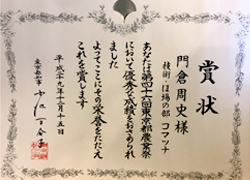 賞状
技術・ほ場の部 コマツナ
門倉周史様
あなたは第四十六回東京都農業祭
において優秀な成績をおさめられ
ました
よってここにその栄誉をたたえ
これを賞します
平成二十九年十二月十五日
東京都知事 小池百合子